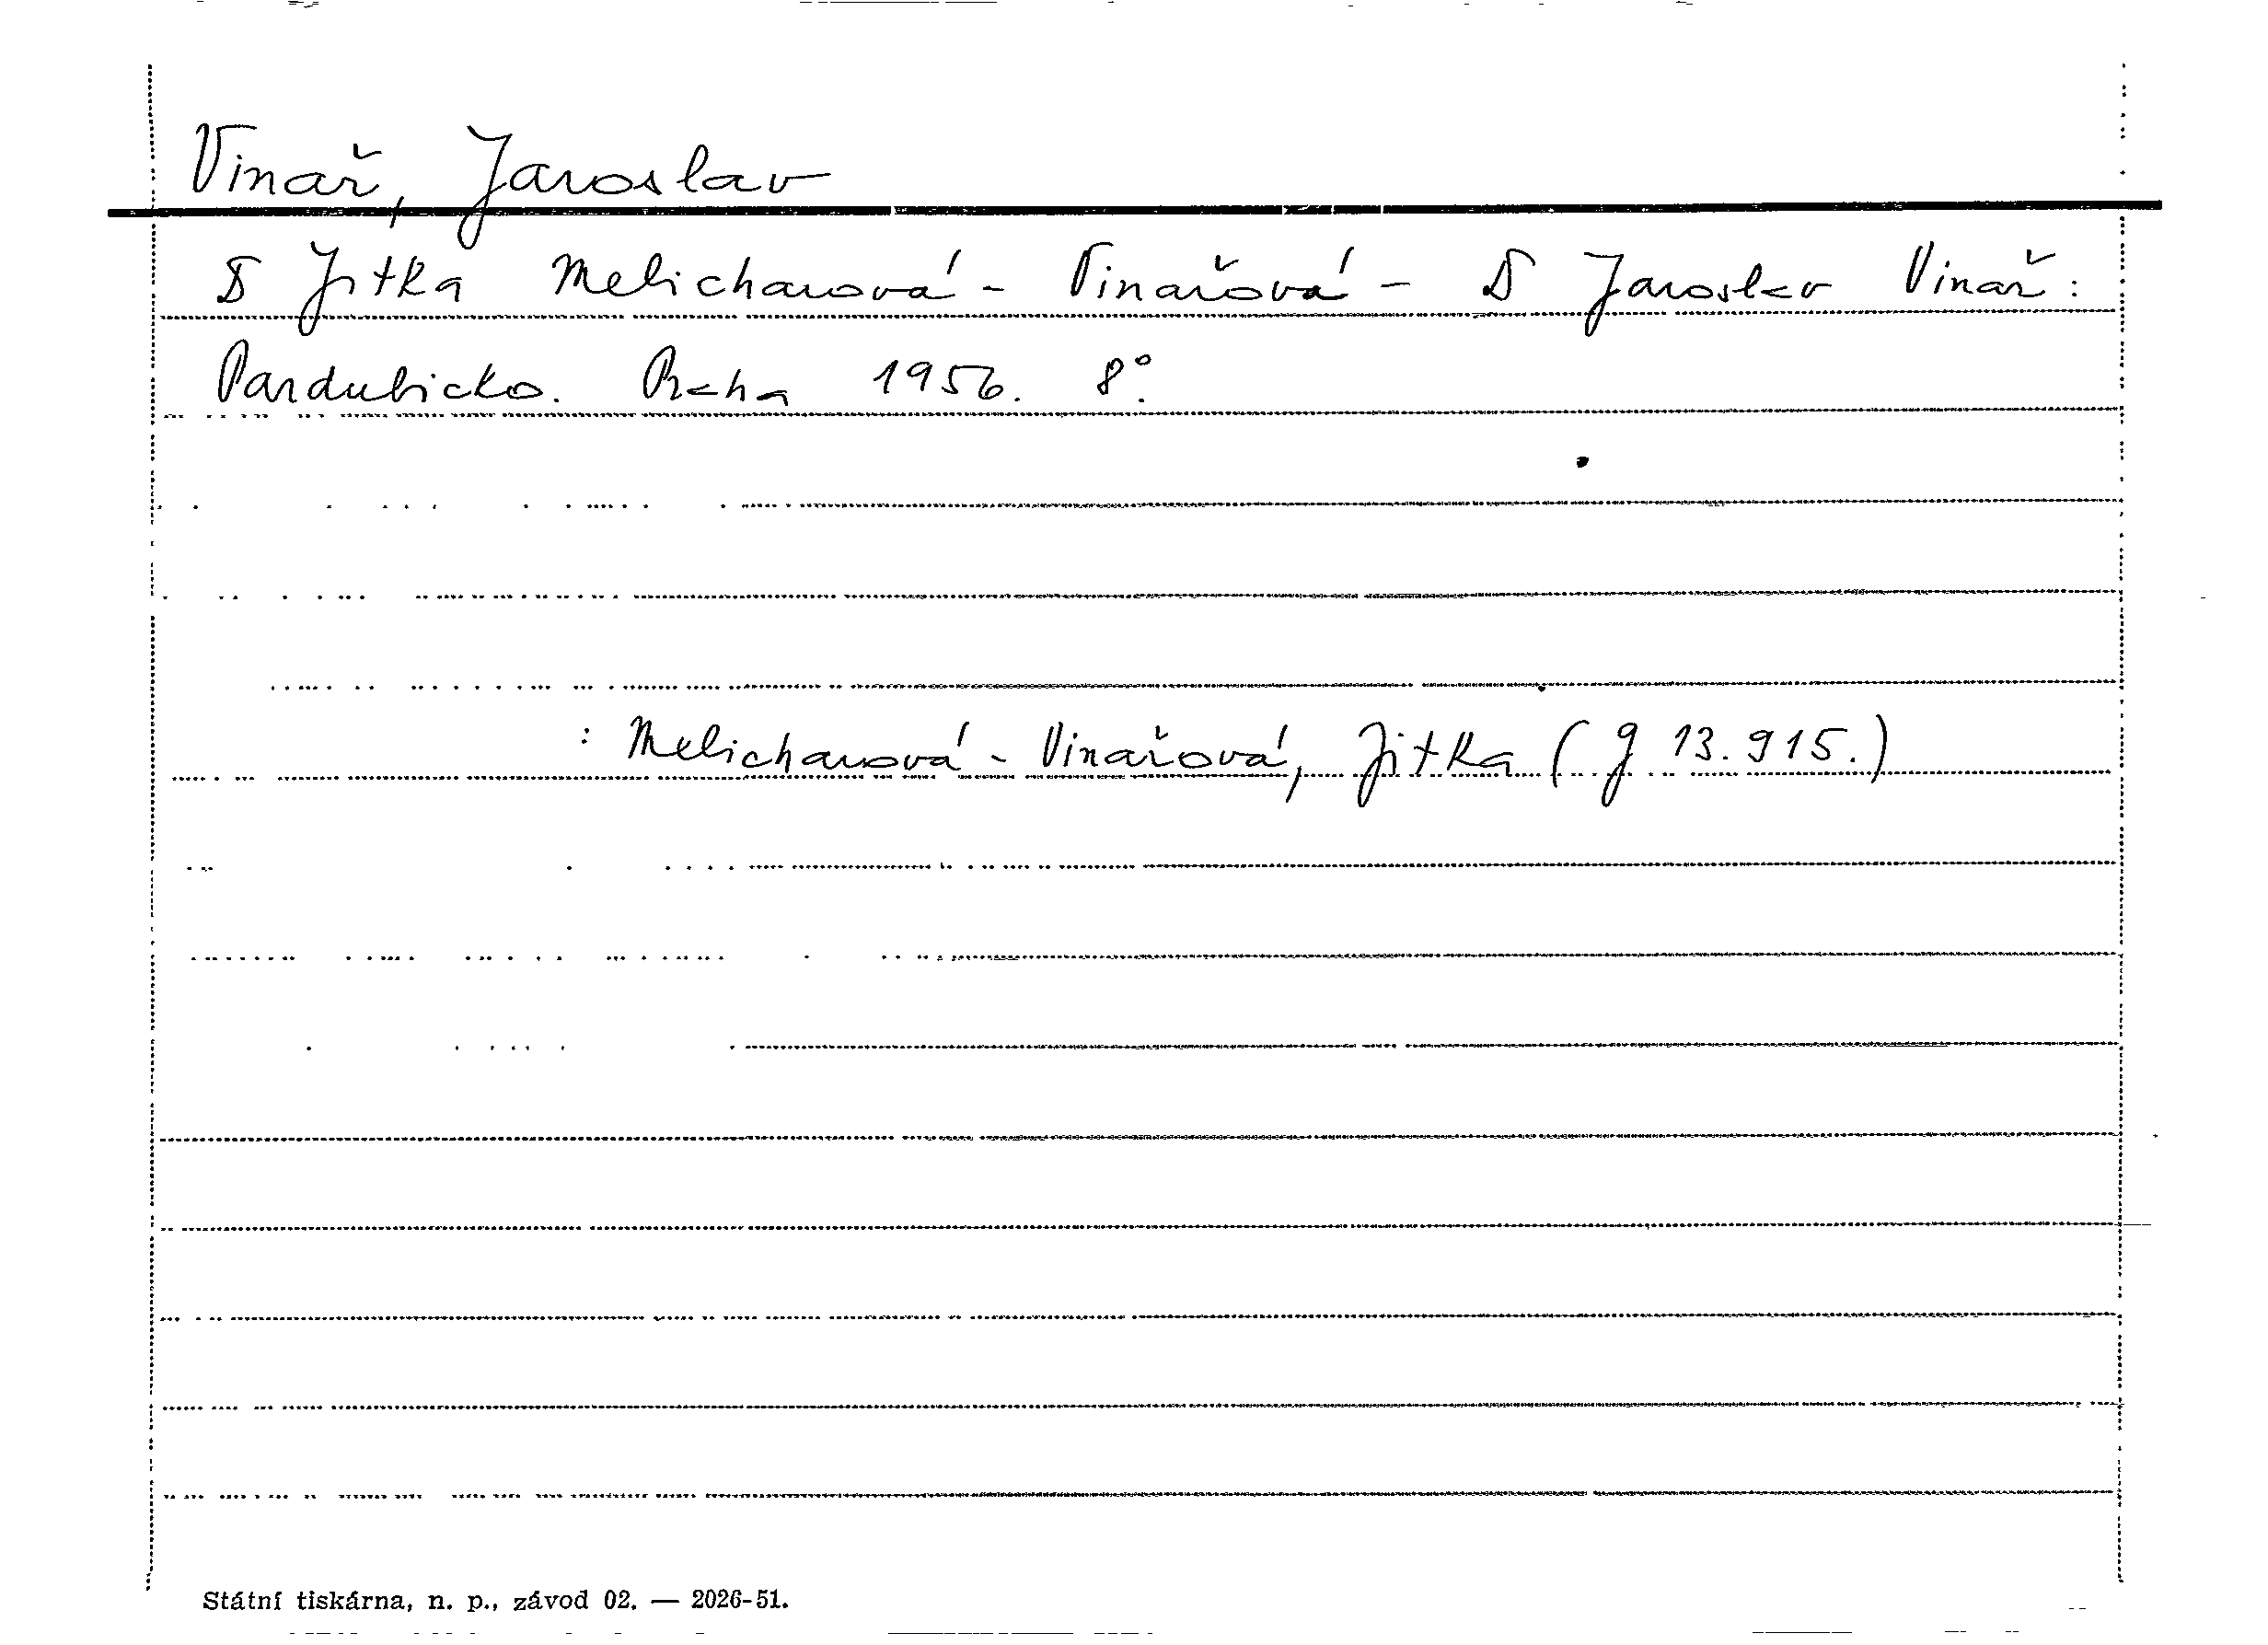 Vinař, Jaroslav
Jitka Melicharová - Vinařová - Jaroslav Vinař:
Pardubicko. Praha 1956. 8°.
: Melicharová - Vinařová, Jitka (g 13.915.)
Státní tiskárna, n. p., závod 02. — 2026-51.